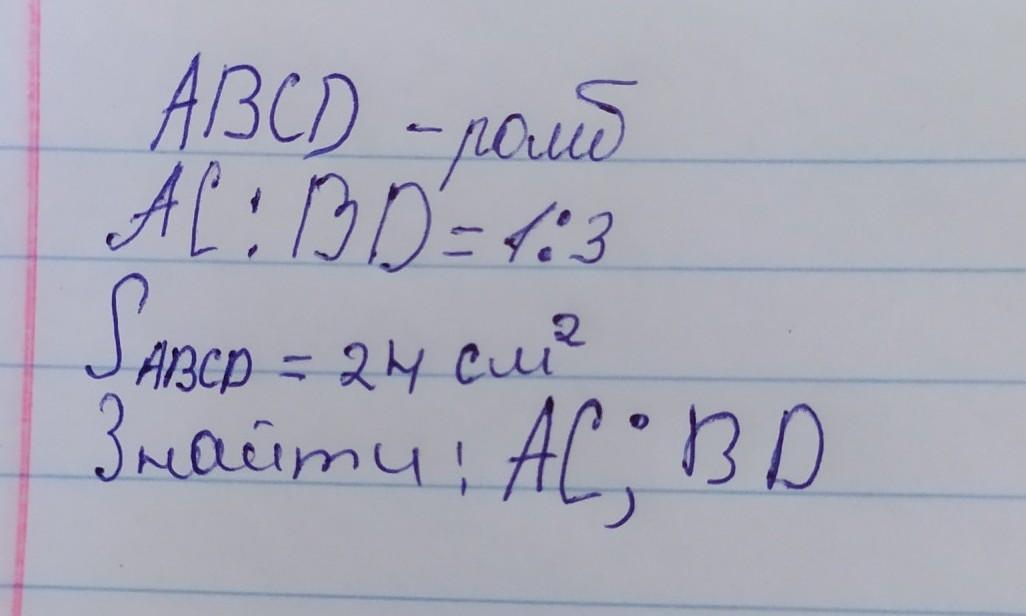 ABCD - ромб
AC : BD = 1:3
S ABCD = 24 см²
Знайти : AC; BD